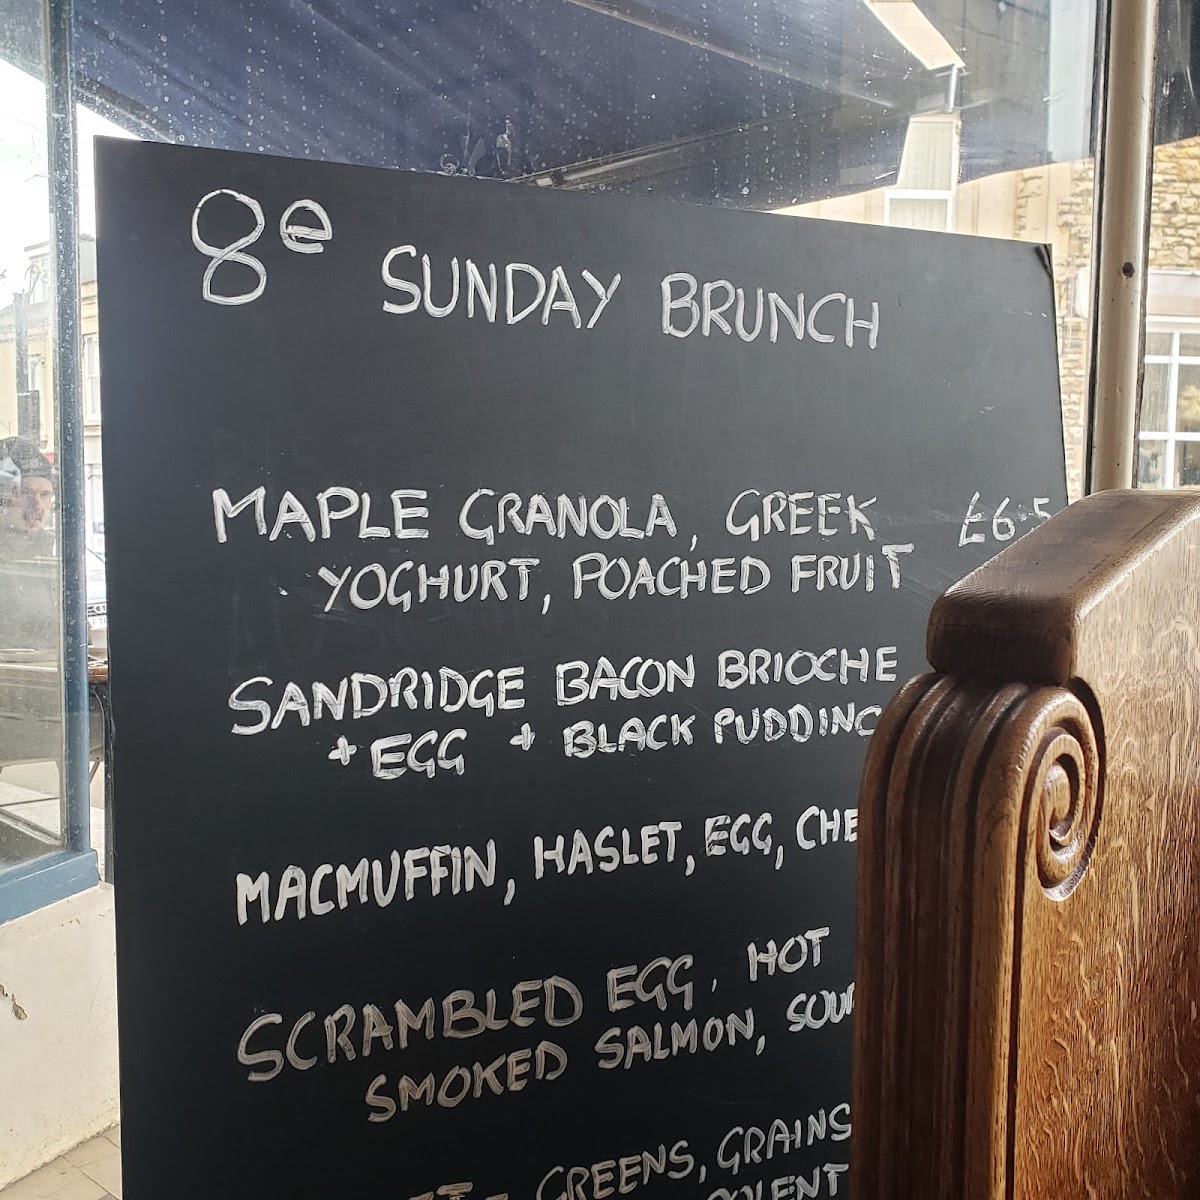 8e SUNDAY BRUNCH
MAPLE GRANOLA, GREEK £6.5
YOGHURT, POACHED FRUIT
SANDRIDGE BACON BRIOCHE
+ EGG + BLACK PUDDING
MACMUFFIN, HASLET, EGG, CHE
SCRAMBLED EGG, HOT
SMOKED SALMON, SOUR
GREENS, GRAINS